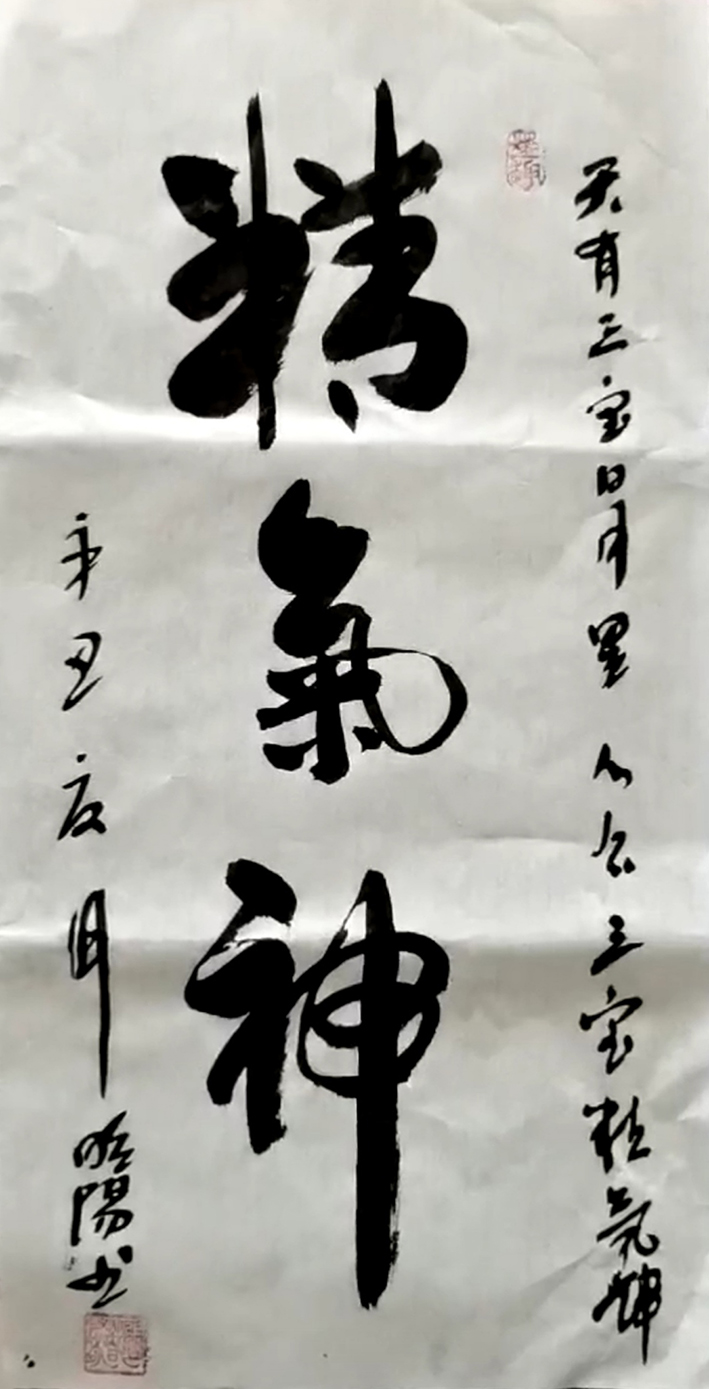 天有三宝日月星 人有三宝精氣神
精氣神
辛丑夏月 陽书